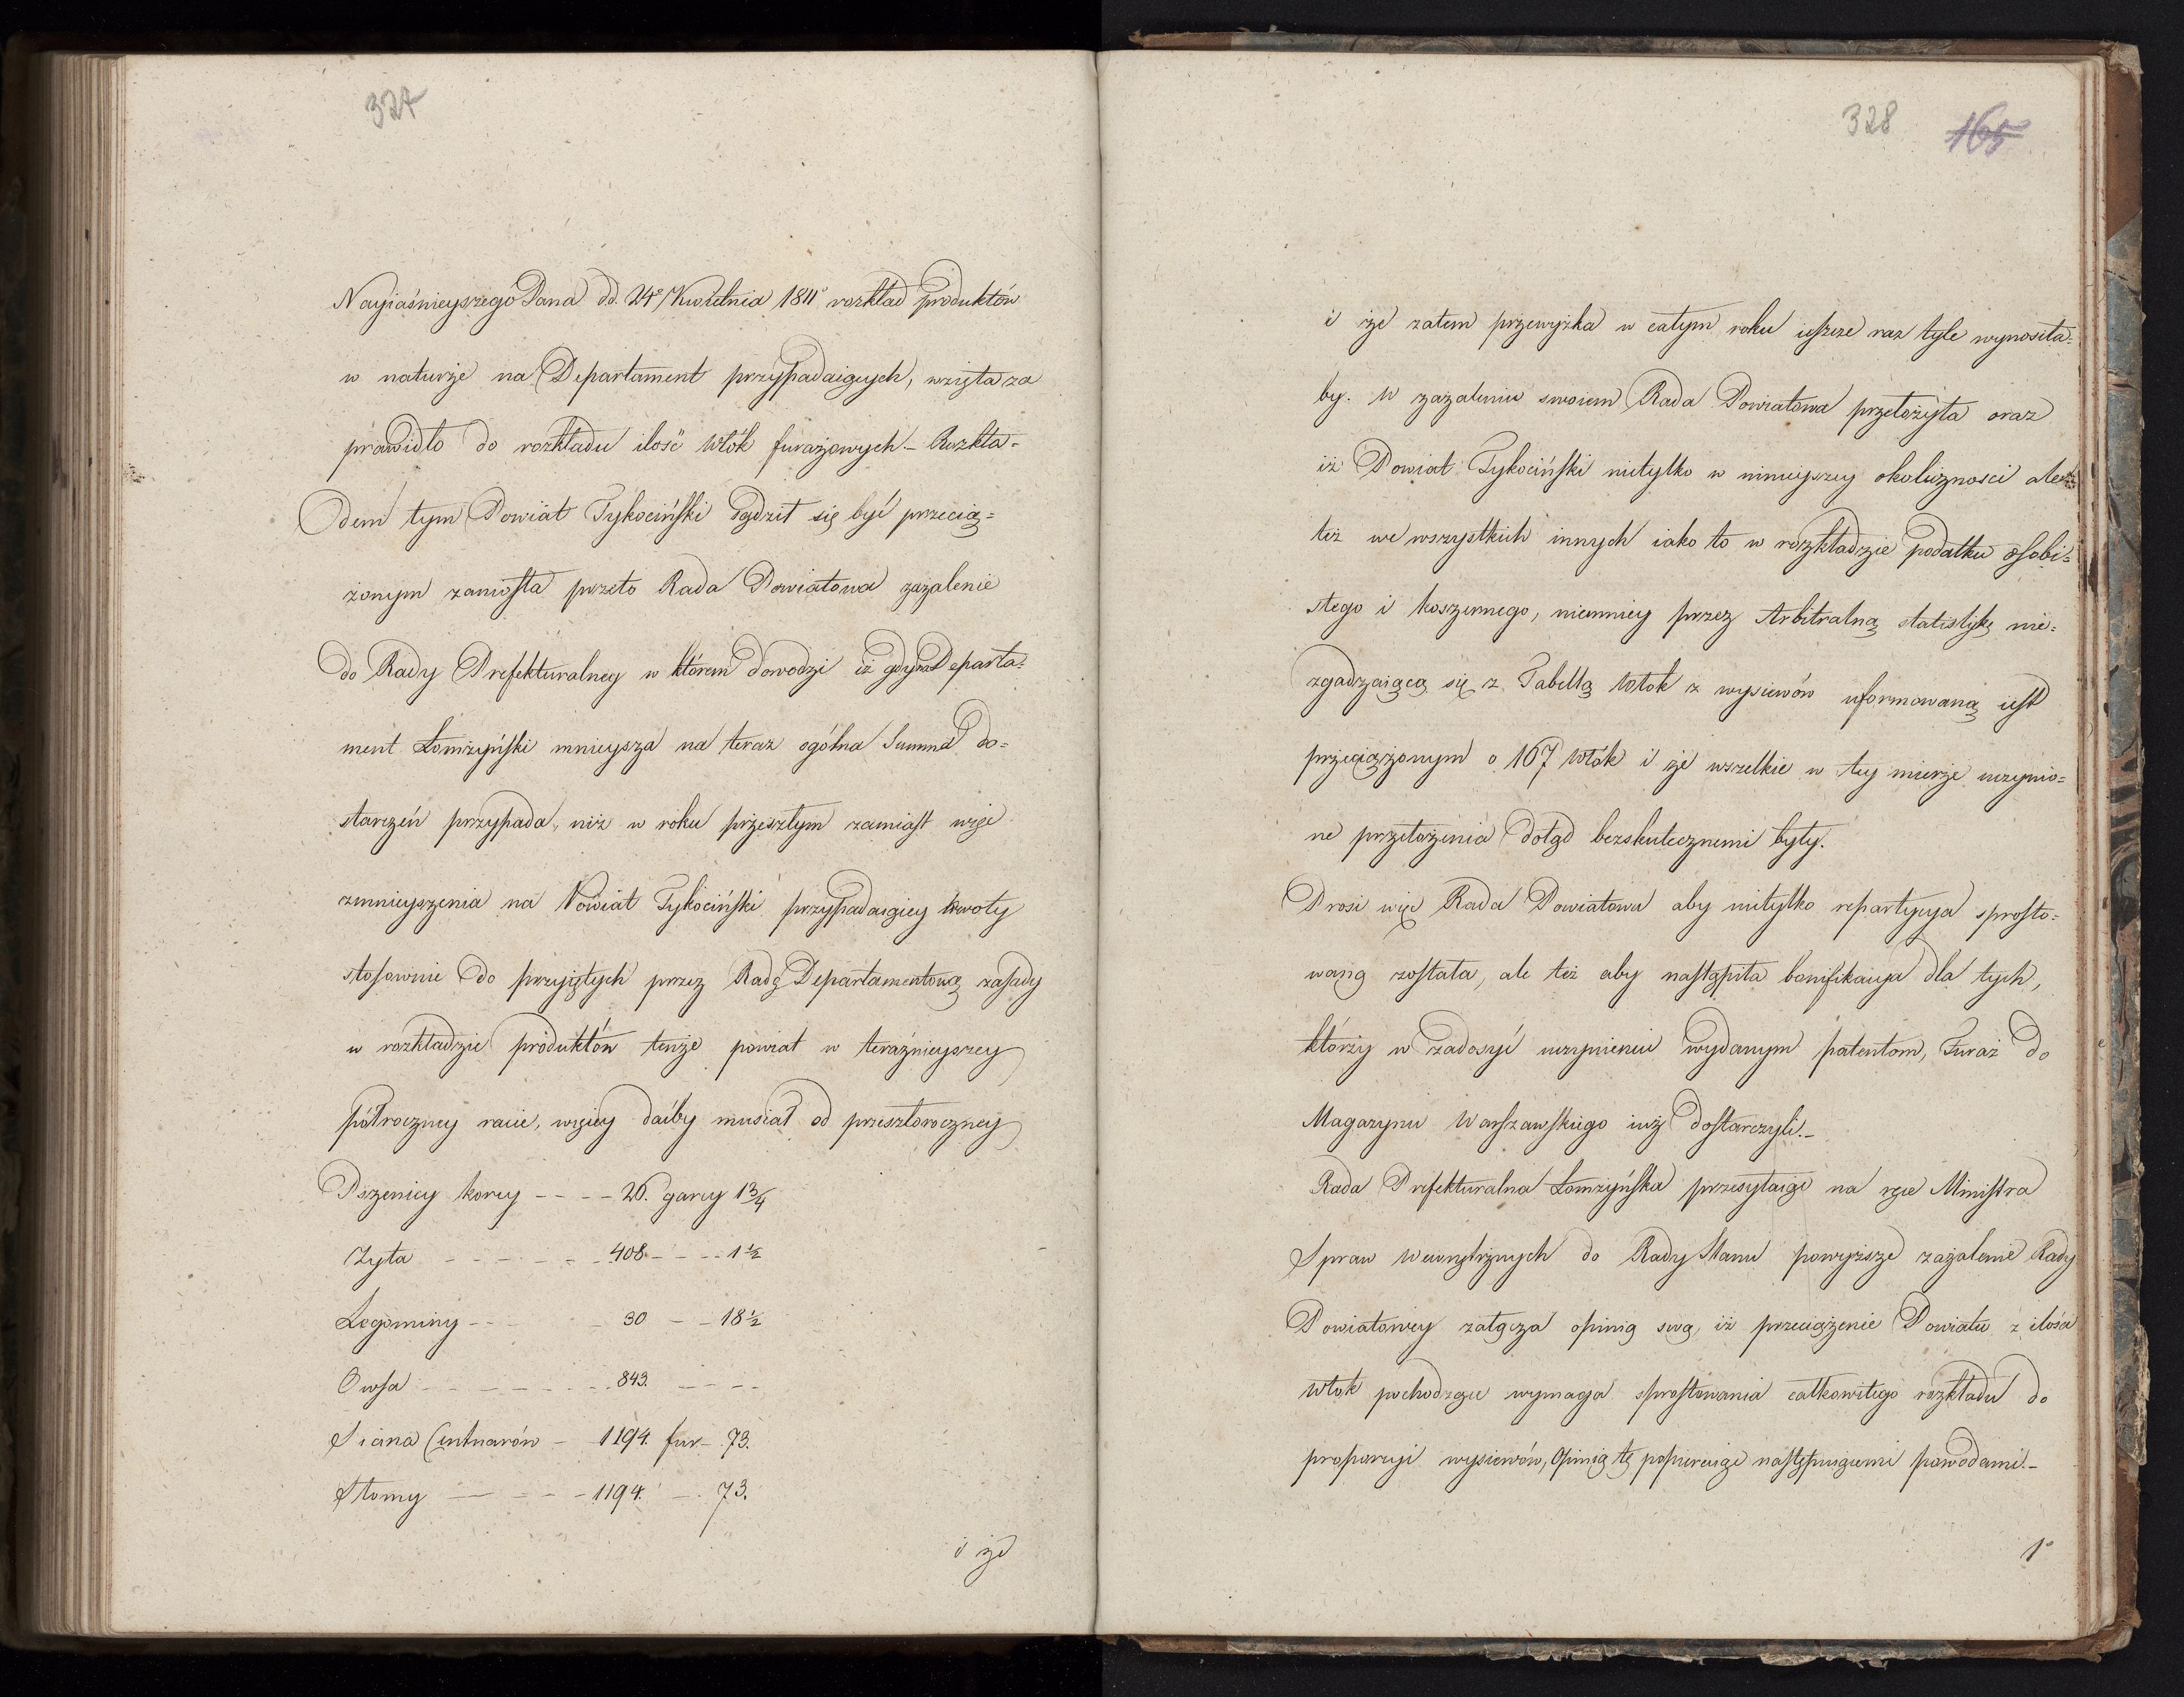 327
Nayiaśnieyszego Pana dd. 24º Kwietnia 1811º rozkład produktów
w naturze na Departament przypadaiących, wzięta za
prawidło do rozkładu ilość Włók furażowych.– Rozkła=
dem tym Powiat Tykociński sądził się być przecią=
żonym zaniosła przeto Rada Powiatowa zażalenie
do Rady Prefekturalney w którem dowodzi iż gdy na Departa=
ment Łomżyński mnieysza na teraz ogólna Summa do=
starczeń przypada, niż w roku przeszłym zamiast więc
zmnieyszenia na Powiat Tykociński przypadaiącey kwoty
stosownie do przyiętych przez Radę Departamentową zasady
w rozkładzie produktów tenże powiat w teraźnieyszey
półroczney racie, więcey daćby musiał od przeszłoroczney
Pszenicy korcy – – – – 26. garcy 13/4
Żyta – – – – – – 408 – – – 1 1/2
Legominy – – – 30 – – 18 1/2
Owsa – – – – – – 843. – – – –
Siana Centnarów – 1194. fun – 73.
Słomy – – – – 1194. – . 73.
i że
328 165
i że zatem przewyżka w całym roku ieszcze raz tyle wynosiła=
by. W zażaleniu swoiem Rada Powiatowa przełożyła oraz
iż Powiat Tykociński nietylko w ninieyszey okoliczności ale
też we wszystkich innych iako to w rozkładzie podatku osobi=
stego i koszernego, niemniey przez Arbitralną statistykę nie=
zgadzaiącą się z Tabellą Włok z wysiewów uformowaną iest
przeciążonym o 167 Włók i że wszelkie w tey mierze uczynio=
ne przełożenia dotąd bezskutecznemi były.
Prosi więc Rada Powiatowa aby nietylko repartycya sprosto=
waną została, ale też aby nastąpiła bonifikacya dla tych,
którzy w zadosyć uczynieniu wydanym patentom, Furaż do
Magazynu Warszawskiego iuż dostarczyli.–
Rada Prefekturalna Łomżyńska przesyłaiąc na ręce Ministra
Spraw Wewnętrznych do Rady Stanu powyższe zażalenie Rady
Powiatowey załącza opinią swą, iż przeciążenie Powiatu z ilości
włok pochodzące wymaga sprostowania całkowitego rozkładu do
proporcyi wysiewów, Opinią tę popieraiąc następuiącemi powodami.–
1º